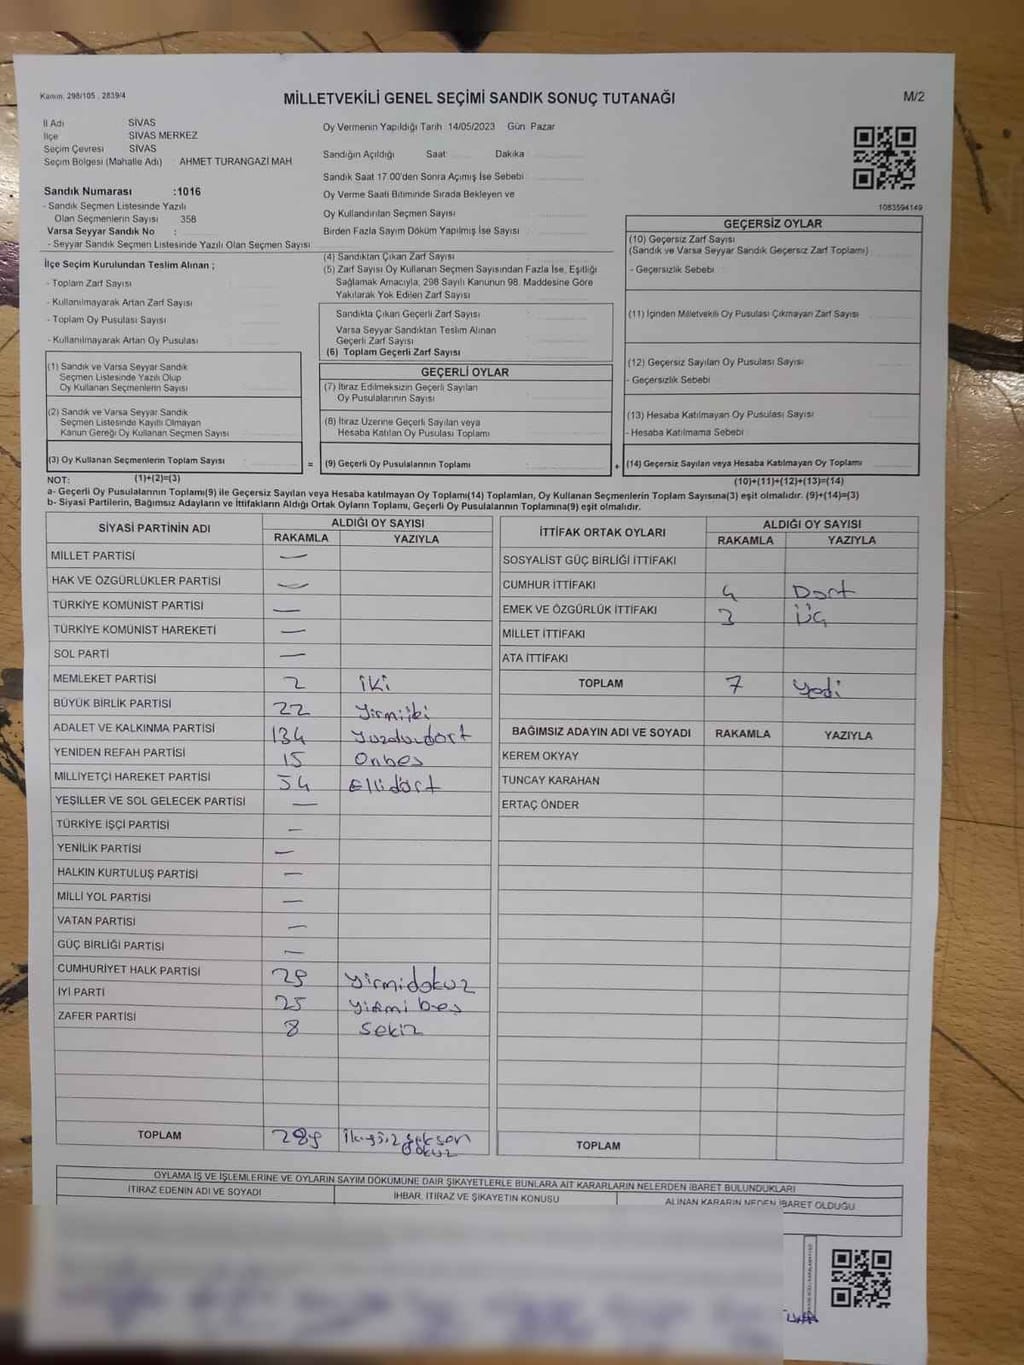 Kanun. 298/105 , 2839/4
MİLLETVEKİLİ GENEL SEÇİMİ SANDIK SONUÇ TUTANAĞI
M/2
İl Adı SİVAS
İlçe SİVAS MERKEZ
Seçim Çevresi SİVAS
Seçim Bölgesi (Mahalle Adı) AHMET TURANGAZİ MAH
Sandık Numarası :1016
- Sandık Seçmen Listesinde Yazılı
Olan Seçmenlerin Sayısı 358
Varsa Seyyar Sandık No :
- Seyyar Sandık Seçmen Listesinde Yazılı Olan Seçmen Sayısı
Oy Vermenin Yapıldığı Tarih 14/05/2023 Gün Pazar
Sandığın Açıldığı Saat Dakika
Sandık Saat 17.00'den Sonra Açımış İse Sebebi
Oy Verme Saati Bitiminde Sırada Bekleyen ve
Oy Kullandırılan Seçmen Sayısı
Birden Fazla Sayım Döküm Yapılmış İse Sayısı
1083594149
İlçe Seçim Kurulundan Teslim Alınan ;
- Toplam Zarf Sayısı
- Kullanılmayarak Artan Zarf Sayısı
- Toplam Oy Pusulası Sayısı
- Kullanılmayarak Artan Oy Pusulası
(1) Sandık ve Varsa Seyyar Sandık
Seçmen Listesinde Yazılı Olup
Oy Kullanan Seçmenlerin Sayısı
(2) Sandık ve Varsa Seyyar Sandık
Seçmen Listesinde Kayıtlı Olmayan
Kanun Gereği Oy Kullanan Seçmen Sayısı
(3) Oy Kullanan Seçmenlerin Toplam Sayısı
(4) Sandıktan Çıkan Zarf Sayısı
(5) Zarf Sayısı Oy Kullanan Seçmen Sayısından Fazla İse, Eşitliği
Sağlamak Amacıyla, 298 Sayılı Kanunun 98. Maddesine Göre
Yakılarak Yok Edilen Zarf Sayısı
Sandıkta Çıkan Geçerli Zarf Sayısı
Varsa Seyyar Sandıktan Teslim Alınan
Geçerli Zarf Sayısı
(6) Toplam Geçerli Zarf Sayısı
GEÇERLİ OYLAR
(7) İtiraz Edilmeksizin Geçerli Sayılan
Oy Pusulalarının Sayısı
(8) İtiraz Üzerine Geçerli Sayılan veya
Hesaba Katılan Oy Pusulası Toplamı
= (9) Geçerli Oy Pusulalarının Toplamı
GEÇERSİZ OYLAR
(10) Geçersiz Zarf Sayısı
(Sandık ve Varsa Seyyar Sandık Geçersiz Zarf Toplamı)
- Geçersizlik Sebebi
(11) İçinden Milletvekili Oy Pusulası Çıkmayan Zarf Sayısı
(12) Geçersiz Sayılan Oy Pusulası Sayısı
- Geçersizlik Sebebi
(13) Hesaba Katılmayan Oy Pusulası Sayısı
- Hesaba Katılmama Sebebi
+ (14) Geçersiz Sayılan veya Hesaba Katılmayan Oy Toplamı
NOT: (1)+(2)=(3) (10)+(11)+(12)+(13)=(14)
a- Geçerli Oy Pusulalarının Toplamı(9) ile Geçersiz Sayılan veya Hesaba katılmayan Oy Toplamı(14) Toplamları, Oy Kullanan Seçmenlerin Toplam Sayısına(3) eşit olmalıdır. (9)+(14)=(3)
b- Siyasi Partilerin, Bağımsız Adayların ve İttifakların Aldığı Ortak Oyların Toplamı, Geçerli Oy Pusulalarının Toplamına(9) eşit olmalıdır.
SİYASİ PARTİNİN ADI ALDIĞI OY SAYISI
RAKAMLA YAZIYLA
MİLLET PARTİSİ —
HAK VE ÖZGÜRLÜKLER PARTİSİ —
TÜRKİYE KOMÜNİST PARTİSİ —
TÜRKİYE KOMÜNİST HAREKETİ —
SOL PARTİ —
MEMLEKET PARTİSİ 2 iki
BÜYÜK BİRLİK PARTİSİ 22 yirmiiki
ADALET VE KALKINMA PARTİSİ 134 yuzotuzdört
YENİDEN REFAH PARTİSİ 15 Onbeş
MİLLİYETÇİ HAREKET PARTİSİ 54 Ellidört
YEŞİLLER VE SOL GELECEK PARTİSİ —
TÜRKİYE İŞÇİ PARTİSİ —
YENİLİK PARTİSİ —
HALKIN KURTULUŞ PARTİSİ —
MİLLİ YOL PARTİSİ —
VATAN PARTİSİ —
GÜÇ BİRLİĞİ PARTİSİ —
CUMHURİYET HALK PARTİSİ 29 yirmidokuz
İYİ PARTİ 25 yirmi beş
ZAFER PARTİSİ 8 sekiz
TOPLAM 289 ikiyüz seksen
dokuz
İTTİFAK ORTAK OYLARI ALDIĞI OY SAYISI
RAKAMLA YAZIYLA
SOSYALİST GÜÇ BİRLİĞİ İTTİFAKI
CUMHUR İTTİFAKI 4 Dört
EMEK VE ÖZGÜRLÜK İTTİFAKI 3 üç
MİLLET İTTİFAKI
ATA İTTİFAKI
TOPLAM 7 yedi
BAĞIMSIZ ADAYIN ADI VE SOYADI RAKAMLA YAZIYLA
KEREM OKYAY
TUNCAY KARAHAN
ERTAÇ ÖNDER
TOPLAM
OYLAMA İŞ VE İŞLEMLERİNE VE OYLARIN SAYIM DÖKÜMÜNE DAİR ŞİKAYETLERLE BUNLARA AİT KARARLARIN NELERDEN İBARET BULUNDUKLARI
İTİRAZ EDENİN ADI VE SOYADI İHBAR, İTİRAZ VE ŞİKAYETİN KONUSU ALINAN KARARIN NEDEN İBARET OLDUĞU